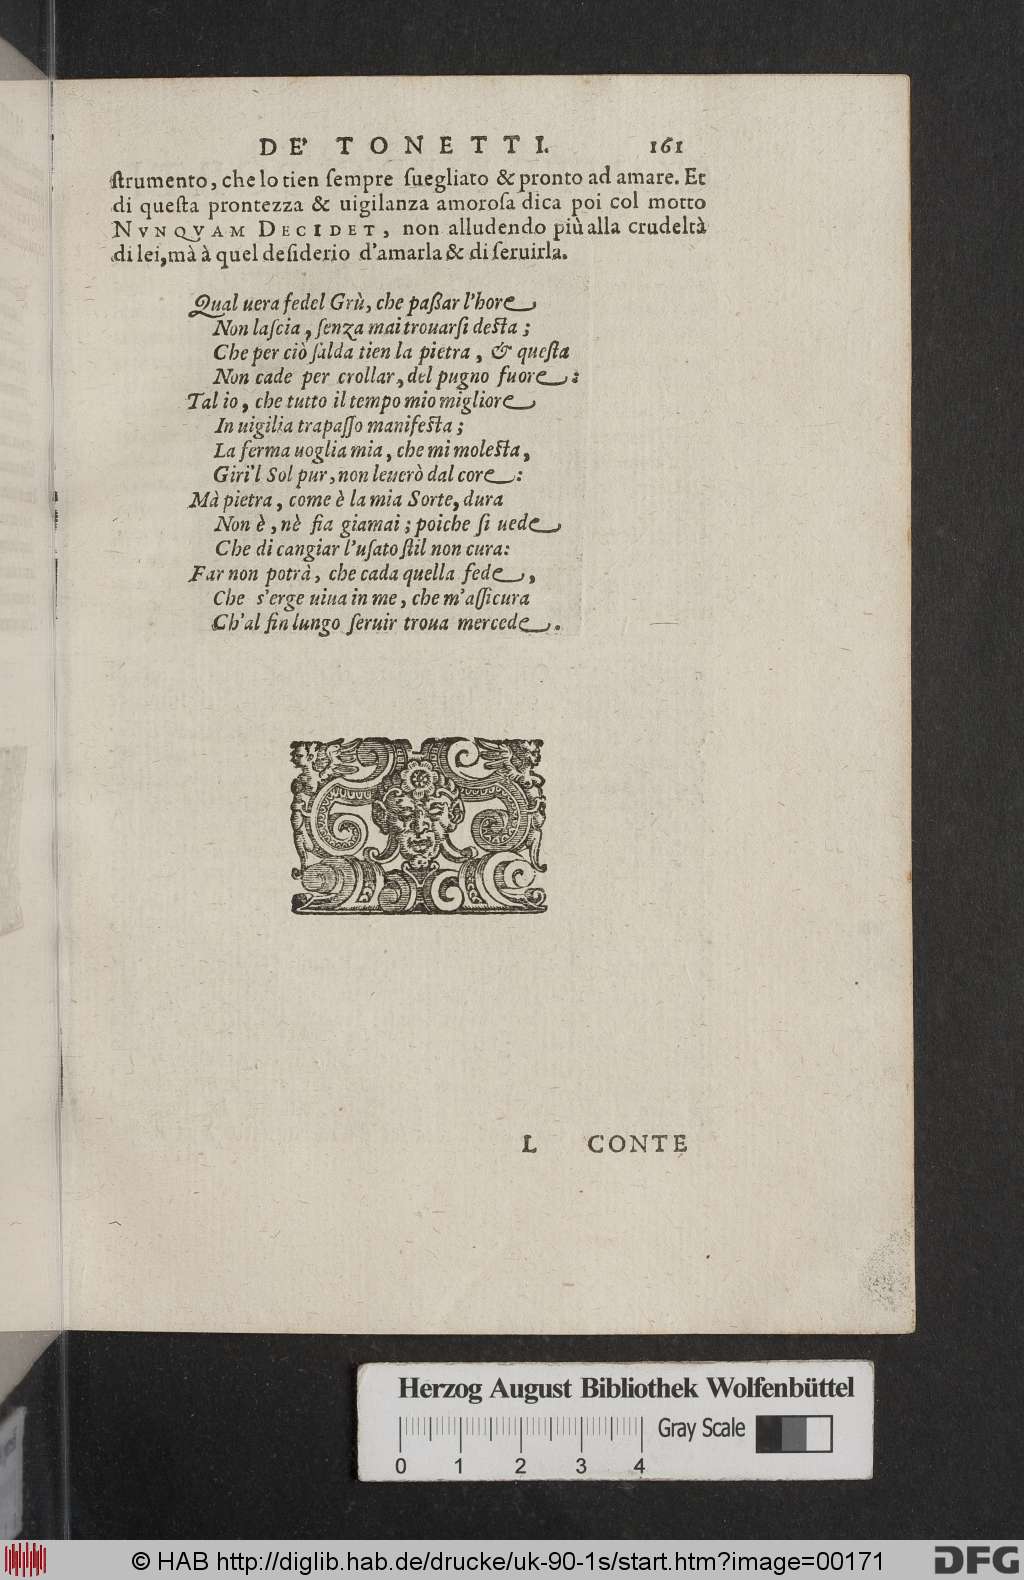 DE' TONETTI. 161
ſtrumento, che lo tien ſempre ſuegliato & pronto ad amare. Et
di queſta prontezza & uigilanza amoroſa dica poi col motto
NVNQVAM DECIDET, non alludendo più alla crudeltà
di lei, mà à quel deſiderio d'amarla & di ſeruirla.
Qual uera fedel Grù, che paßar l'hore
Non laſcia, ſenza mai trouarſi deſta;
Che per ciò ſalda tien la pietra, & queſta
Non cade per crollar, del pugno fuore:
Tal io, che tutto il tempo mio migliore
In uigilia trapaſſo manifeſta;
La ferma uoglia mia, che mi moleſta,
Giri'l Sol pur, non leuerò dal core:
Mà pietra, come è la mia Sorte, dura
Non è, nè fia giamai; poiche ſi uede
Che di cangiar l'uſato ſtil non cura:
Far non potrà, che cada quella fede,
Che s'erge uiua in me, che m'aſſicura
Ch'al fin lungo ſeruir troua mercede.
L CONTE
Herzog August Bibliothek Wolfenbüttel
Gray Scale
0 1 2 3 4
© HAB http://diglib.hab.de/drucke/uk-90-1s/start.htm?image=00171
DFG